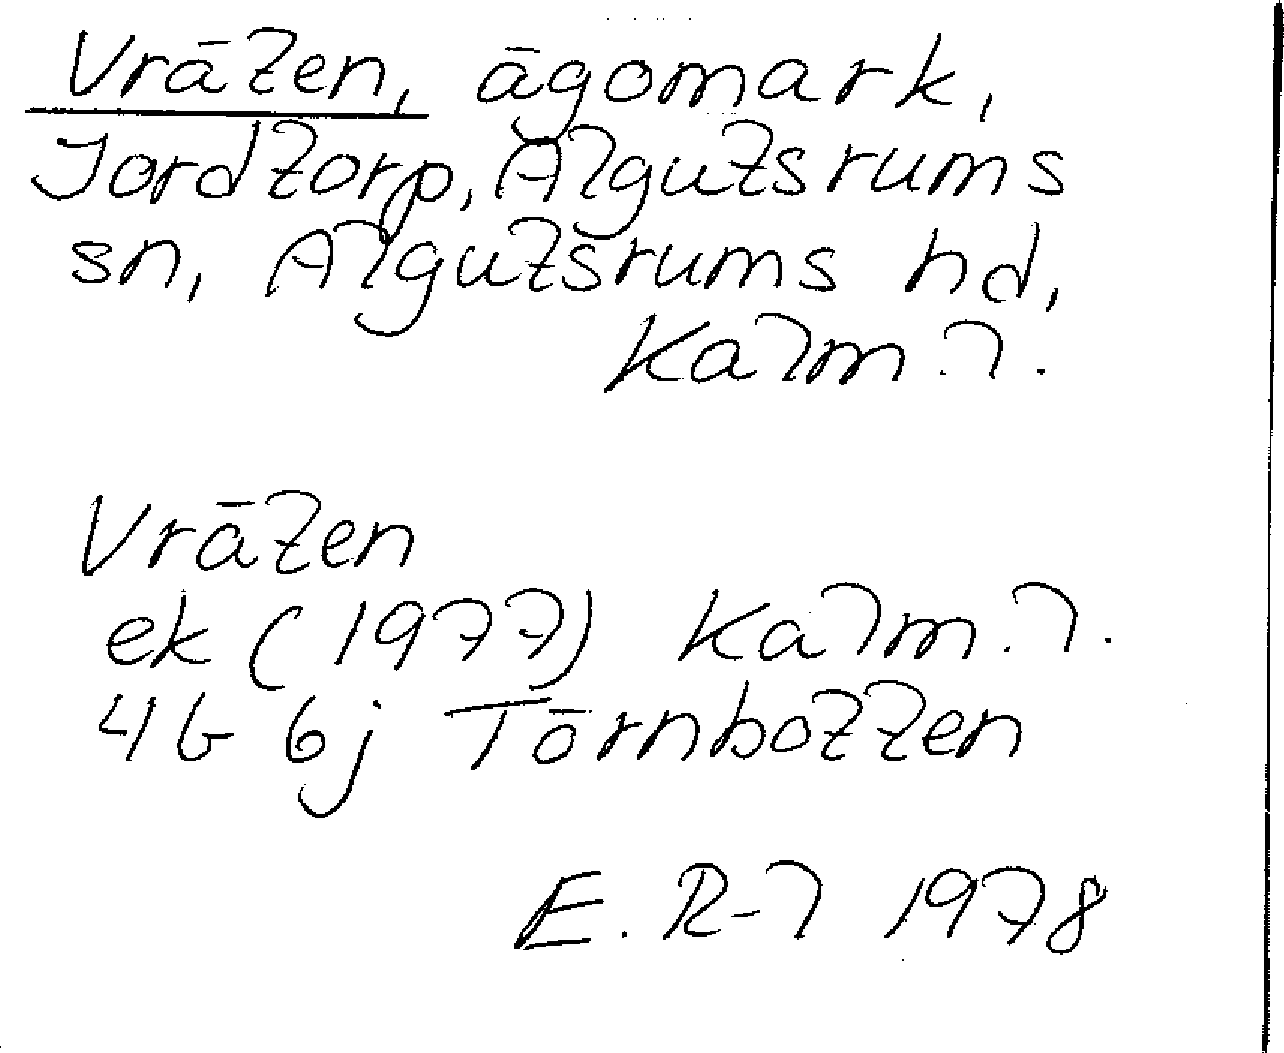 Vråten, ägomark,
Jordtorp, Algutsrums
sn, Algutsrums hd,
Kalm. l.
Vråten
ek (1977) Kalm. l.
4G 6j Törnbotten
E. R-l 1978